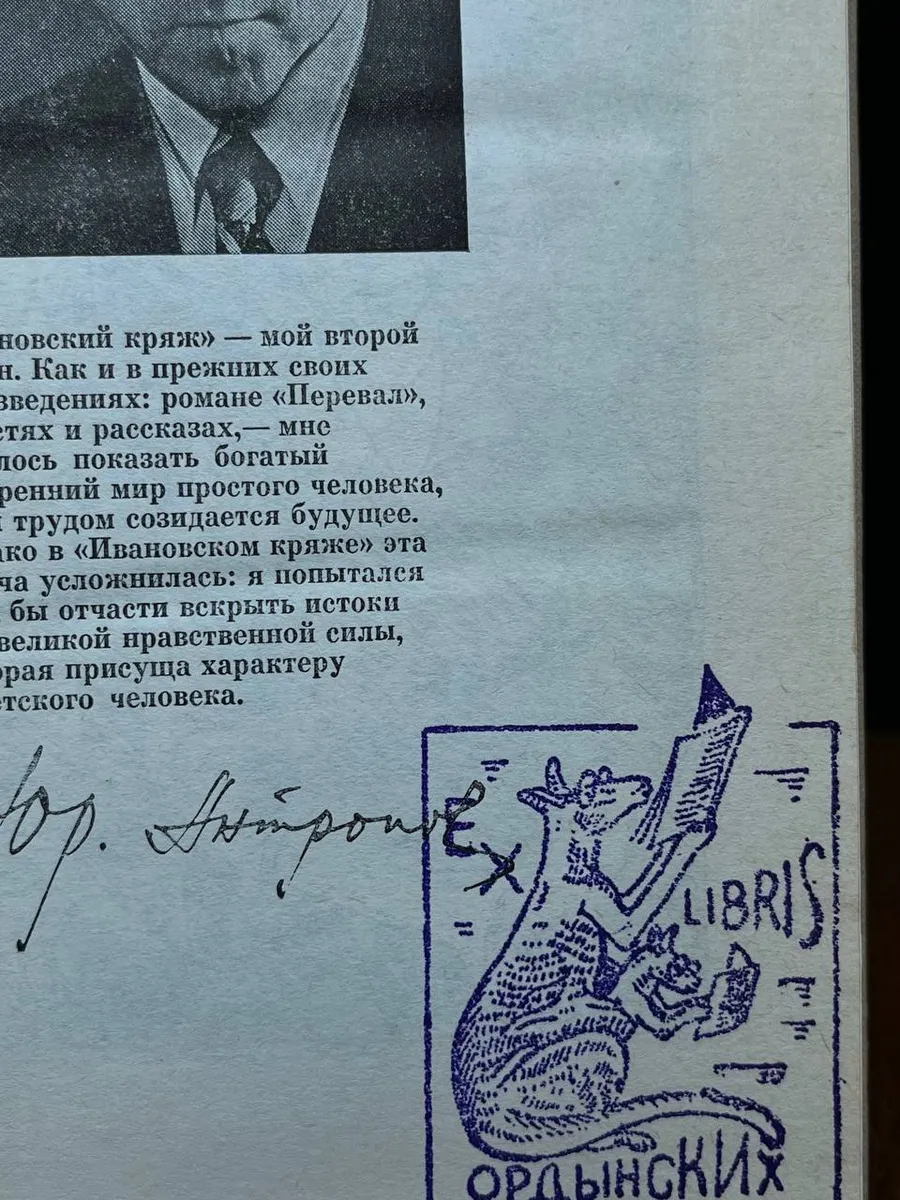 новский кряж» — мой второй
н. Как и в прежних своих
зведениях: романе «Перевал»,
стях и рассказах,— мне
лось показать богатый
ренний мир простого человека,
трудом созидается будущее.
ако в «Ивановском кряже» эта
ча усложнилась: я попытался
бы отчасти вскрыть истоки
великой нравственной силы,
орая присуща характеру
етского человека.
Юр. Антропов
EX
LIBRIS
ОРДЫНСКИХ